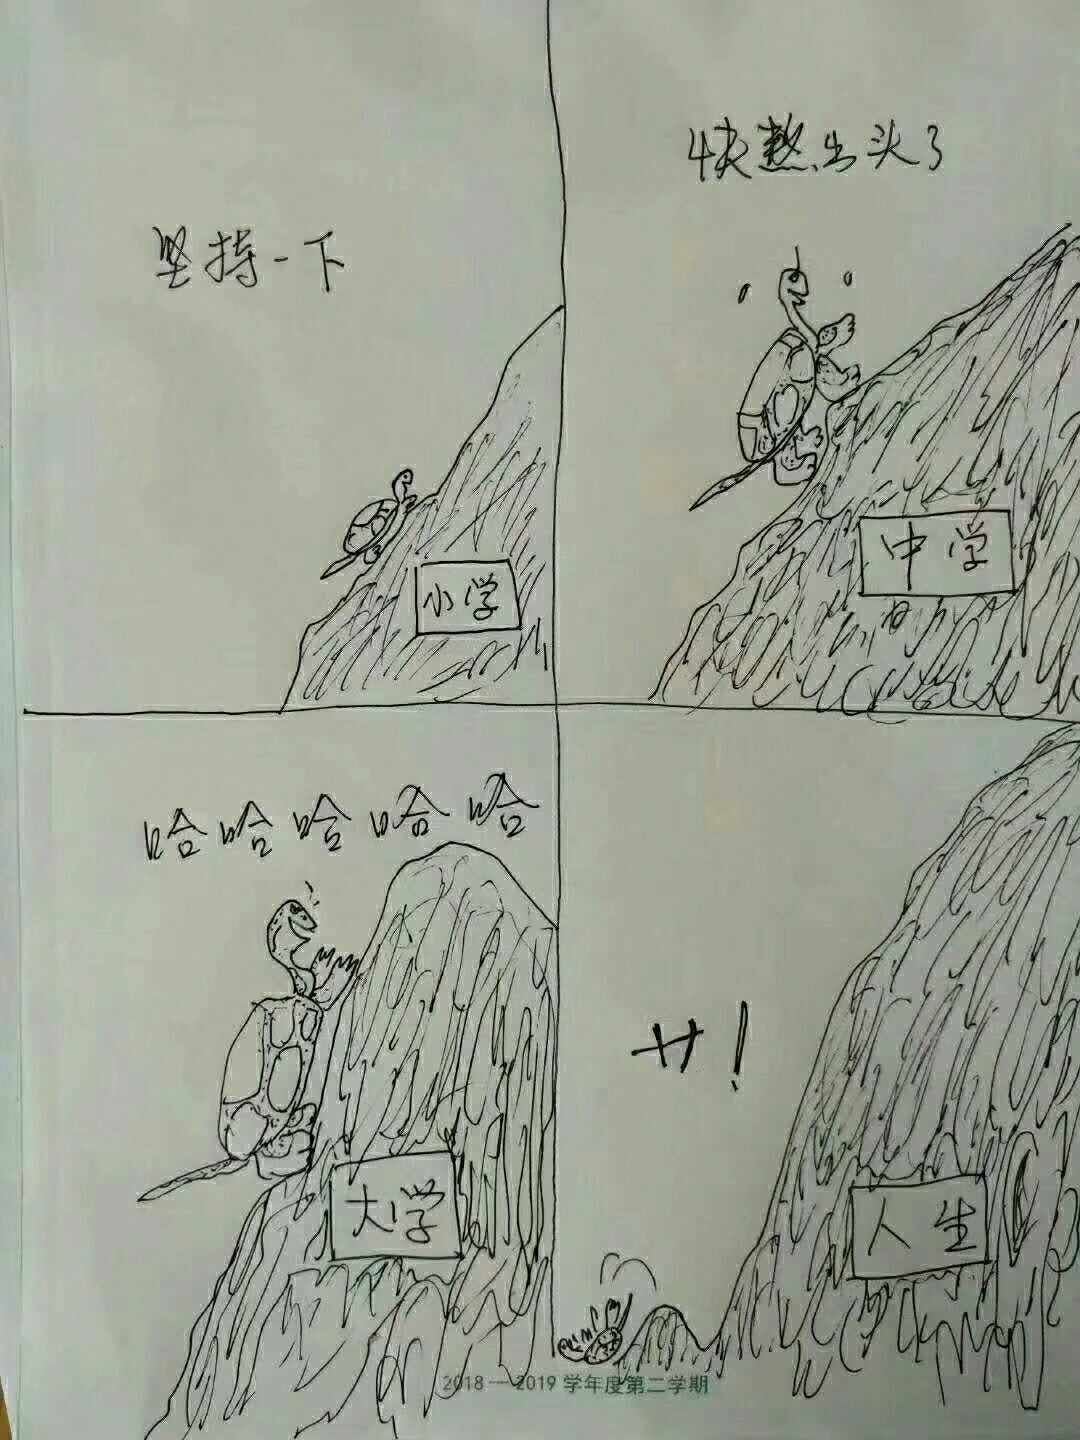 坚持一下
小学
快熬出头了
中学
哈哈哈哈哈
大学
艹！
人生
2018—2019 学年度第二学期